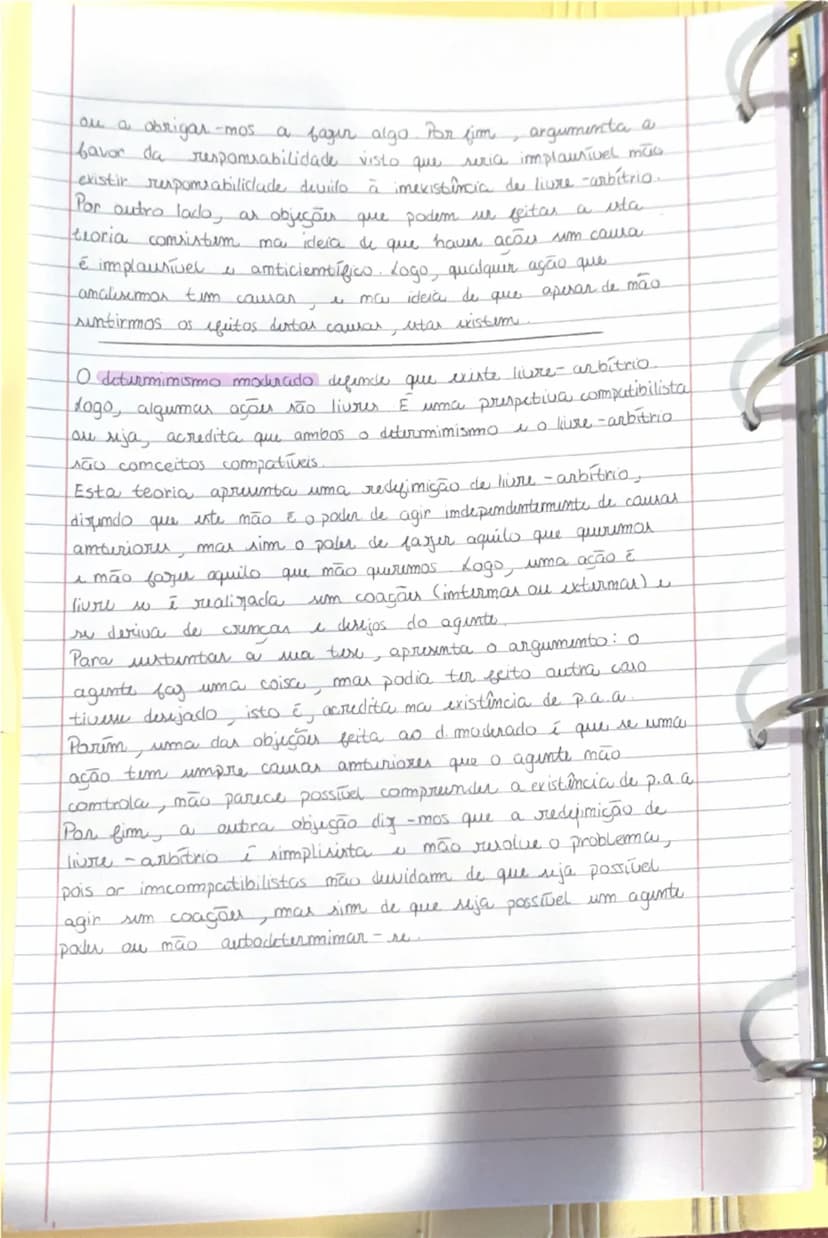 ou a obrigar-nos a fazer algo. Por fim, argumenta a
favor da responsabilidade visto que seria implausível não
existir responsabilidade devido à inexistência de livre-arbítrio.
Por outro lado, as objeções que podem ser feitas a esta
teoria consistem na ideia de que haver ações sem causa
é implausível e anticientífico. Logo, qualquer ação que
analisemos tem causas, e na ideia de que apesar de não
sentirmos os efeitos destas causas, estas existem.
O determinismo moderado defende que existe livre-arbítrio.
Logo, algumas ações são livres. É uma prespetiva compatibilista
ou seja, acredita que ambos o determinismo e o livre-arbítrio
são conceitos compatíveis.
Esta teoria apresenta uma redefinição de livre-arbítrio,
dizendo que este não é o poder de agir independentemente de causas
anteriores, mas sim o poder de fazer aquilo que queremos
e não fazer aquilo que não queremos. Logo, uma ação é
livre se é realizada sem coações (internas ou externas) e
se deriva de crenças e desejos do agente.
Para sustentar a sua tese, apresenta o argumento: o
agente faz uma coisa, mas podia ter feito outra caso
tivesse desejado, isto é, acredita na existência de p.a.a.
Porém, uma das objeções feita ao d. moderado é que se uma
ação tem sempre causas anteriores que o agente não
controla, não parece possível compreender a existência de p.a.a
Por fim, a outra objeção diz-nos que a redefinição de
livre-arbítrio é simplisista e não resolve o problema,
pois os imcompatibilistas não duvidam de que seja possível
agir sem coações, mas sim de que seja possível um agente
poder ou não autodeterminar-se.